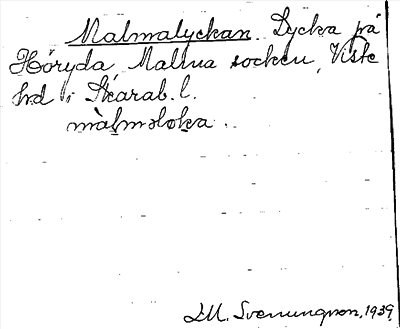 Malmalyckan. Lycka på
Höryda, Mallua socken, Viste
hd i Skarab. l.
màlmələka.
I.M. Svenungsson, 1939.